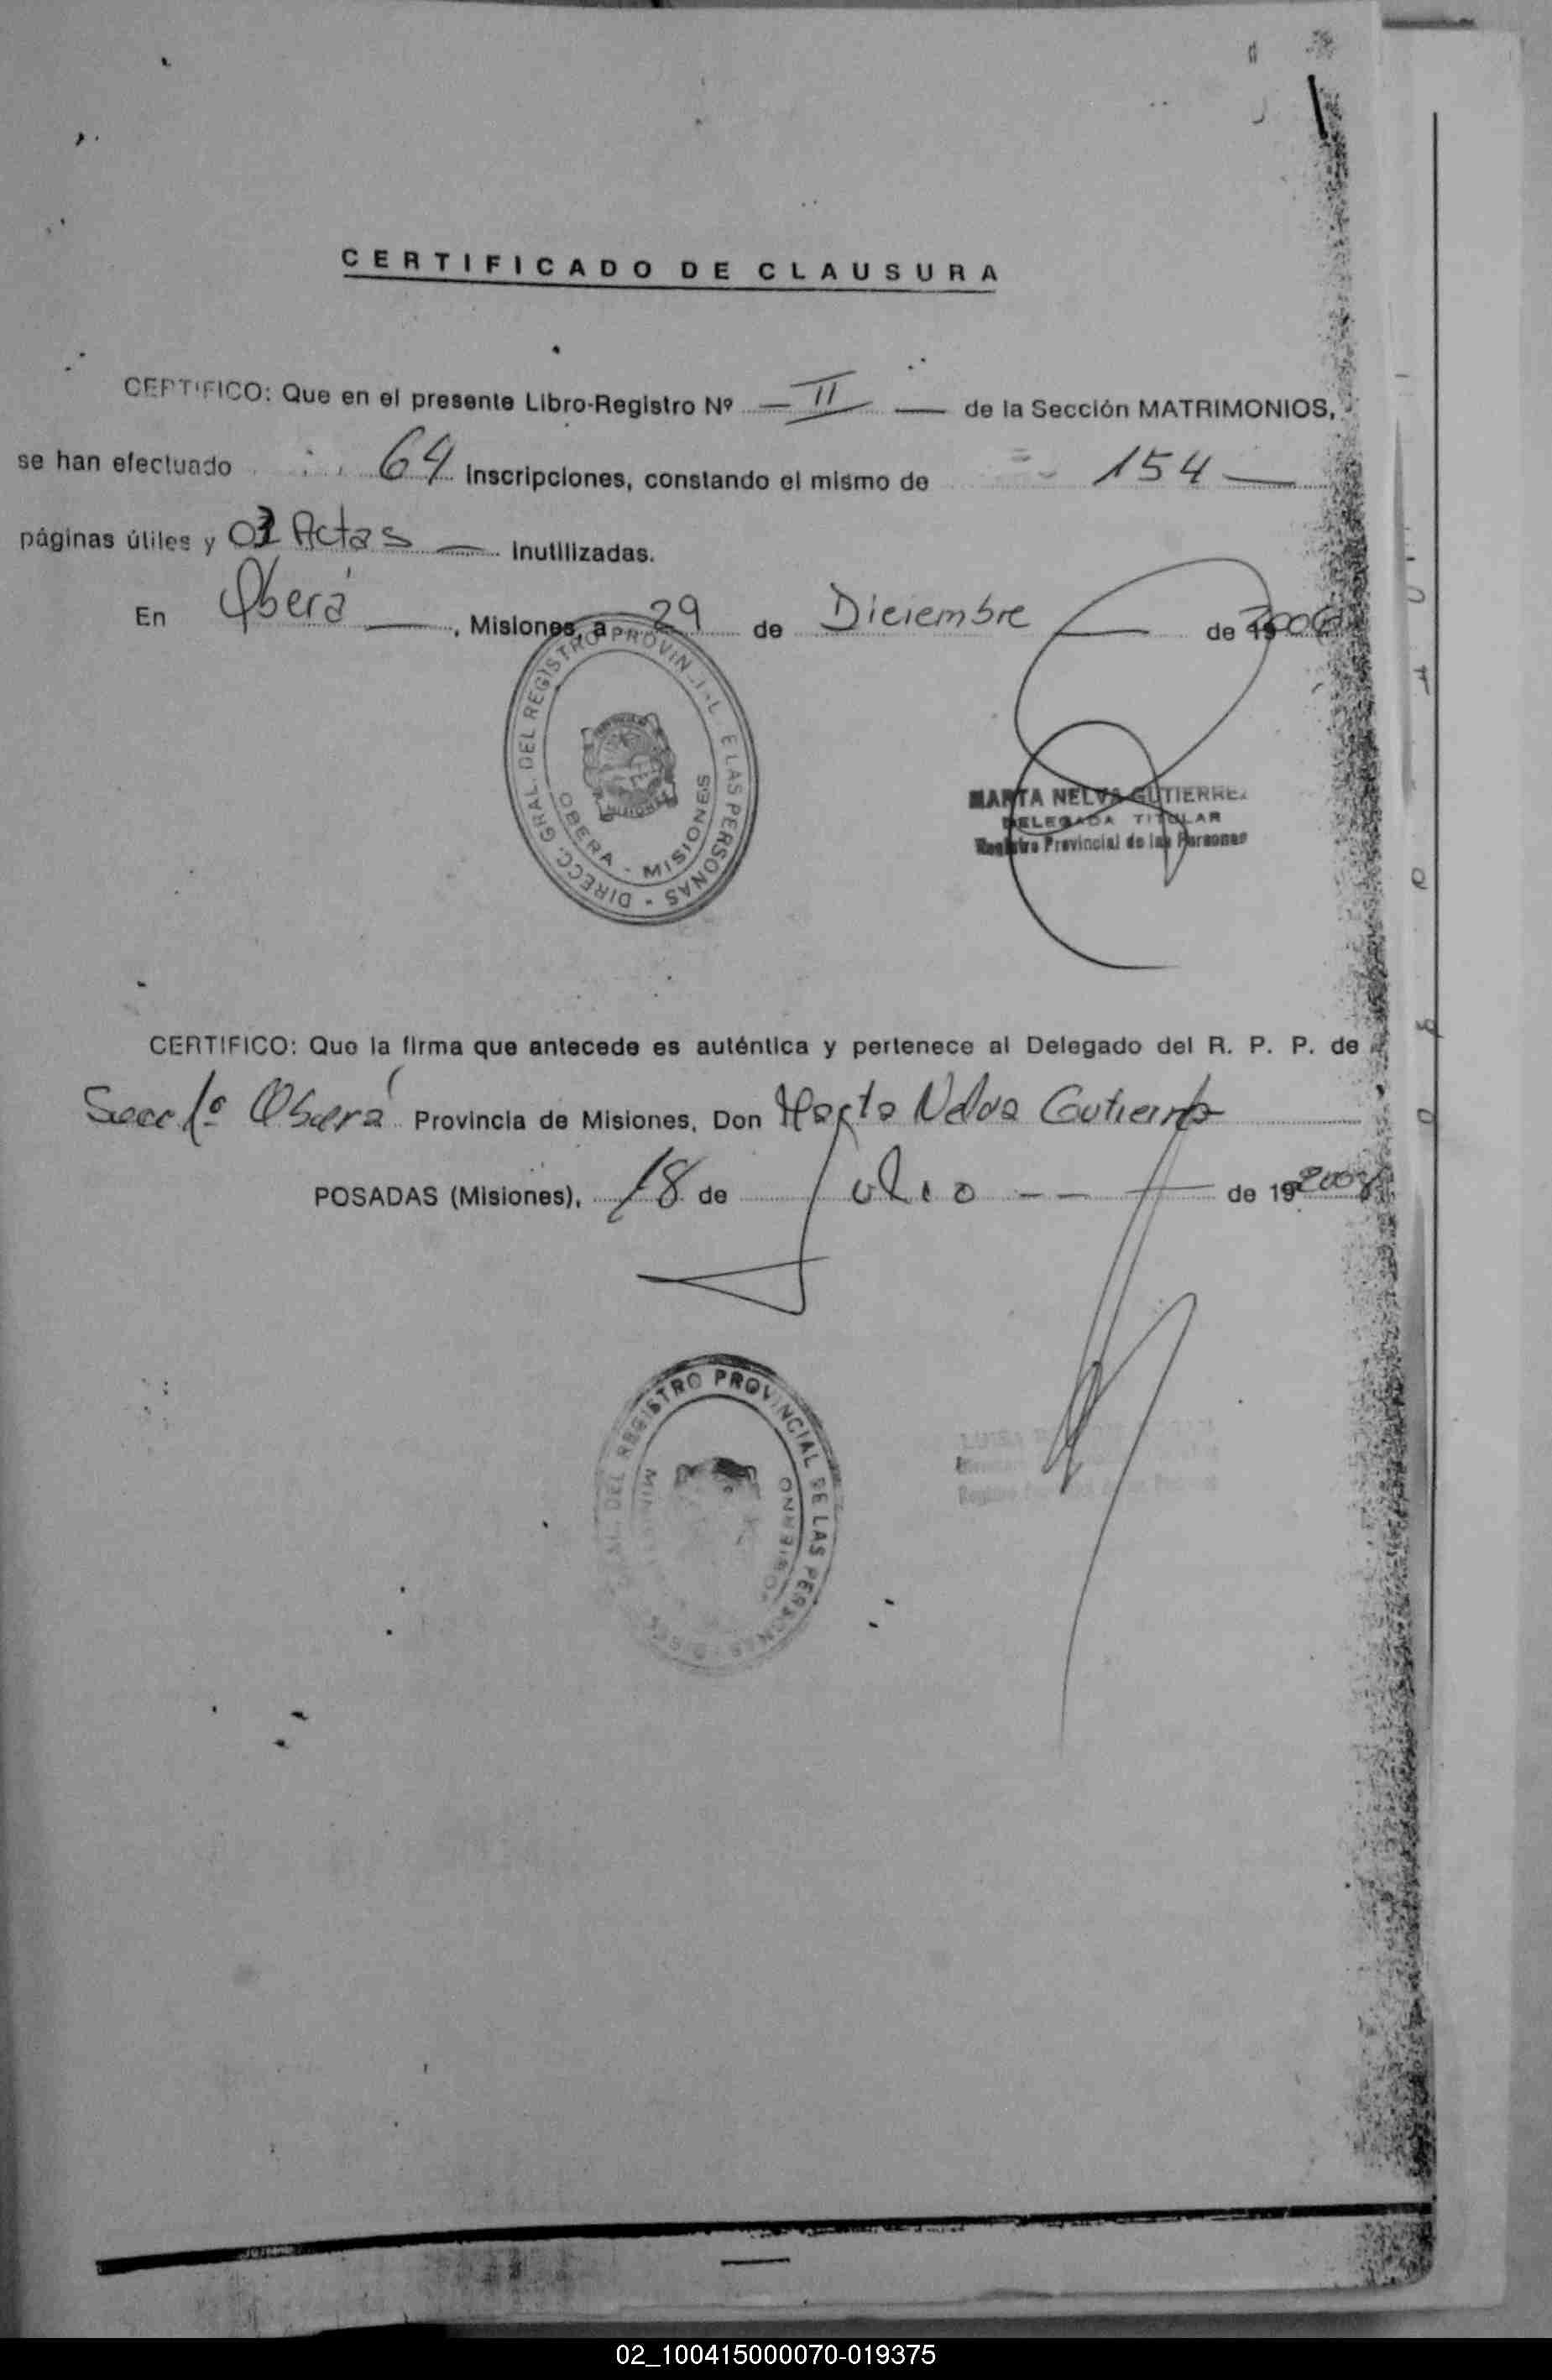 CERTIFICADO DE CLAUSURA
CERTIFICO: Que en el presente Libro-Registro Nº — II — de la Sección MATRIMONIOS,
se han efectuado 64 Inscripciones, constando el mismo de 154 —
páginas útiles y 03 Actas — inutilizadas.
En Oberá —, Misiones, a 29 de Diciembre — de 19 2006
DIRECC. GRAL. DEL REGISTRO PROVINCIAL DE LAS PERSONAS
OBERA - MISIONES
MARTA NELVA GUTIERREZ
DELEGADA TITULAR
Registro Provincial de las Personas
CERTIFICO: Que la firma que antecede es auténtica y pertenece al Delegado del R. P. P. de
Secc 1º Oberá Provincia de Misiones, Don Marta Nelva Gutierrez
POSADAS (Misiones), 18 de Julio — — — de 19
DEL REGISTRO PROVINCIAL DE LAS PERSONAS
02_100415000070-019375